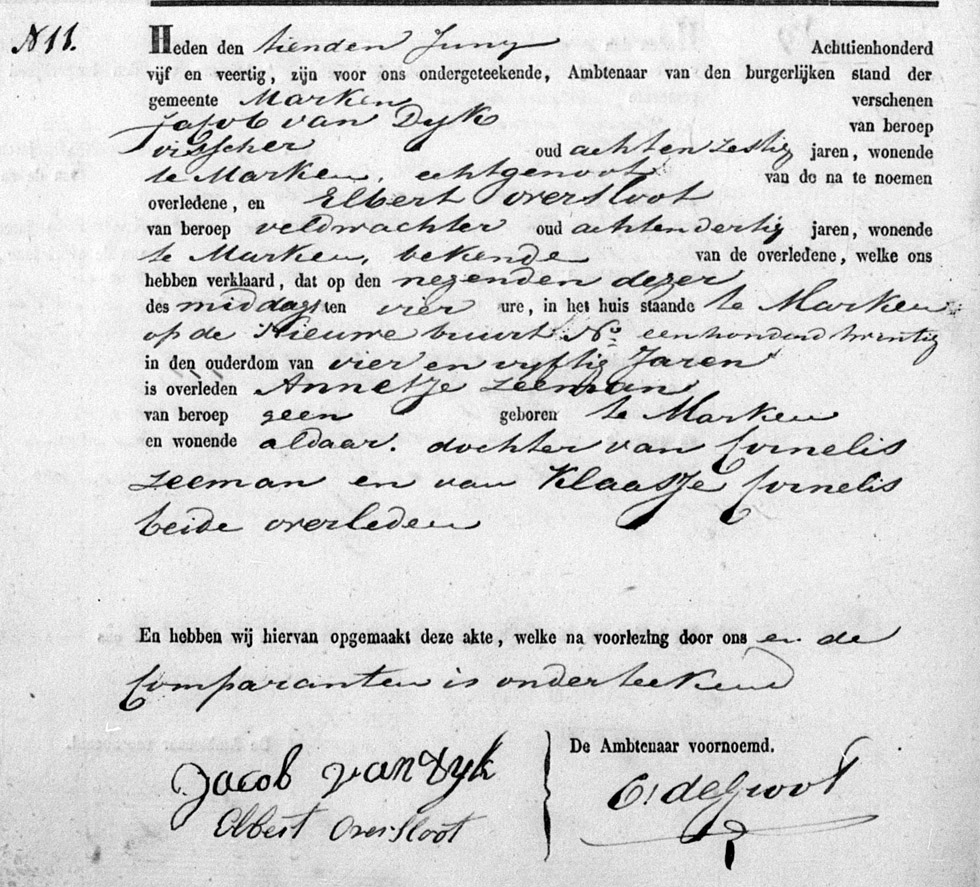 N 11.
Heden den tienden Juny Achttienhonderd
vijf en veertig, zijn voor ons ondergeteekende, Ambtenaar van den burgerlijken stand der
gemeente Marken verschenen
Jacob van Dyk van beroep
visscher oud achtenzestig jaren, wonende
te Marken, echtgenoot van de na te noemen
overledene, en Elbert Oversloot
van beroep veldwachter oud achtendertig jaren, wonende
te Marken, bekende van de overledene, welke ons
hebben verklaard, dat op den negenden dezer
des middags ten vier ure, in het huis staande te Marken
op de Nieuwe buurt No. eenhonderd twentig
in den ouderdom van vier en vyftig Jaren
is overleden Annetje Zeeman
van beroep geen geboren te Marken
en wonende aldaar. dochter van Cornelis
Zeeman en van Klaasje Cornelis
beide overleden
En hebben wij hiervan opgemaakt deze akte, welke na voorlezing door ons en de
Comparanten is onderteekend
De Ambtenaar voornoemd.
Jacob van Dyk
Elbert Oversloot
C: de Groot